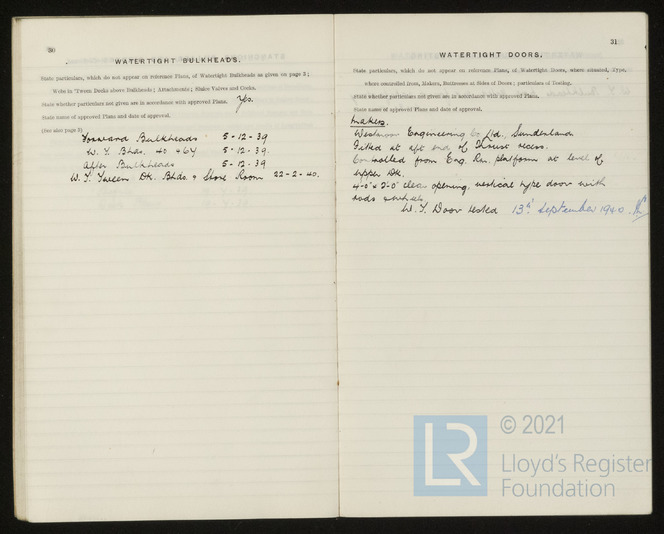 30
WATERTIGHT BULKHEADS.
State particulars, which do not appear on reference Plans, of Watertight Bulkheads as given on page 3;
Webs in 'Tween Decks above Bulkheads; Attachments; Sluice Valves and Cocks.
State whether particulars not given are in accordance with approved Plans. Yes.
State name of approved Plans and date of approval.
(See also page 3)
Forward Bulkheads 5-12-39
W. T. Bhds. 40 & 64 5-12-39.
After Bulkheads 5-12-39
W. T. Tween Dk. Bhds. & Store Room 22-2-40.
31
WATERTIGHT DOORS.
State particulars, which do not appear on reference Plans, of Watertight Doors, where situated, Type,
where controlled from, Makers, Buttresses at Sides of Doors; particulars of Testing.
State whether particulars not given are in accordance with approved Plans.
State name of approved Plans and date of approval.
Makers.
Engineering Co Ltd., Sunderland
Fitted at aft end of Thrust recess.
Controlled from Eng. Rm. platform at level of
upper Dk.
clear opening, vertical type door with
rods & wheels.
W. T. Door tested 13th September 1940.
LR
© 2021
Lloyd's Register
Foundation